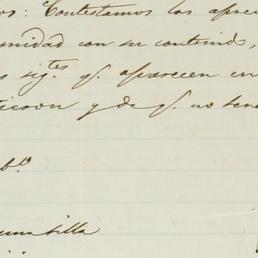 os: Contestamos las apre
midad con su contenido,
s sig.tes q. aparecen en
cieron y de q. no ten
b.o
illa